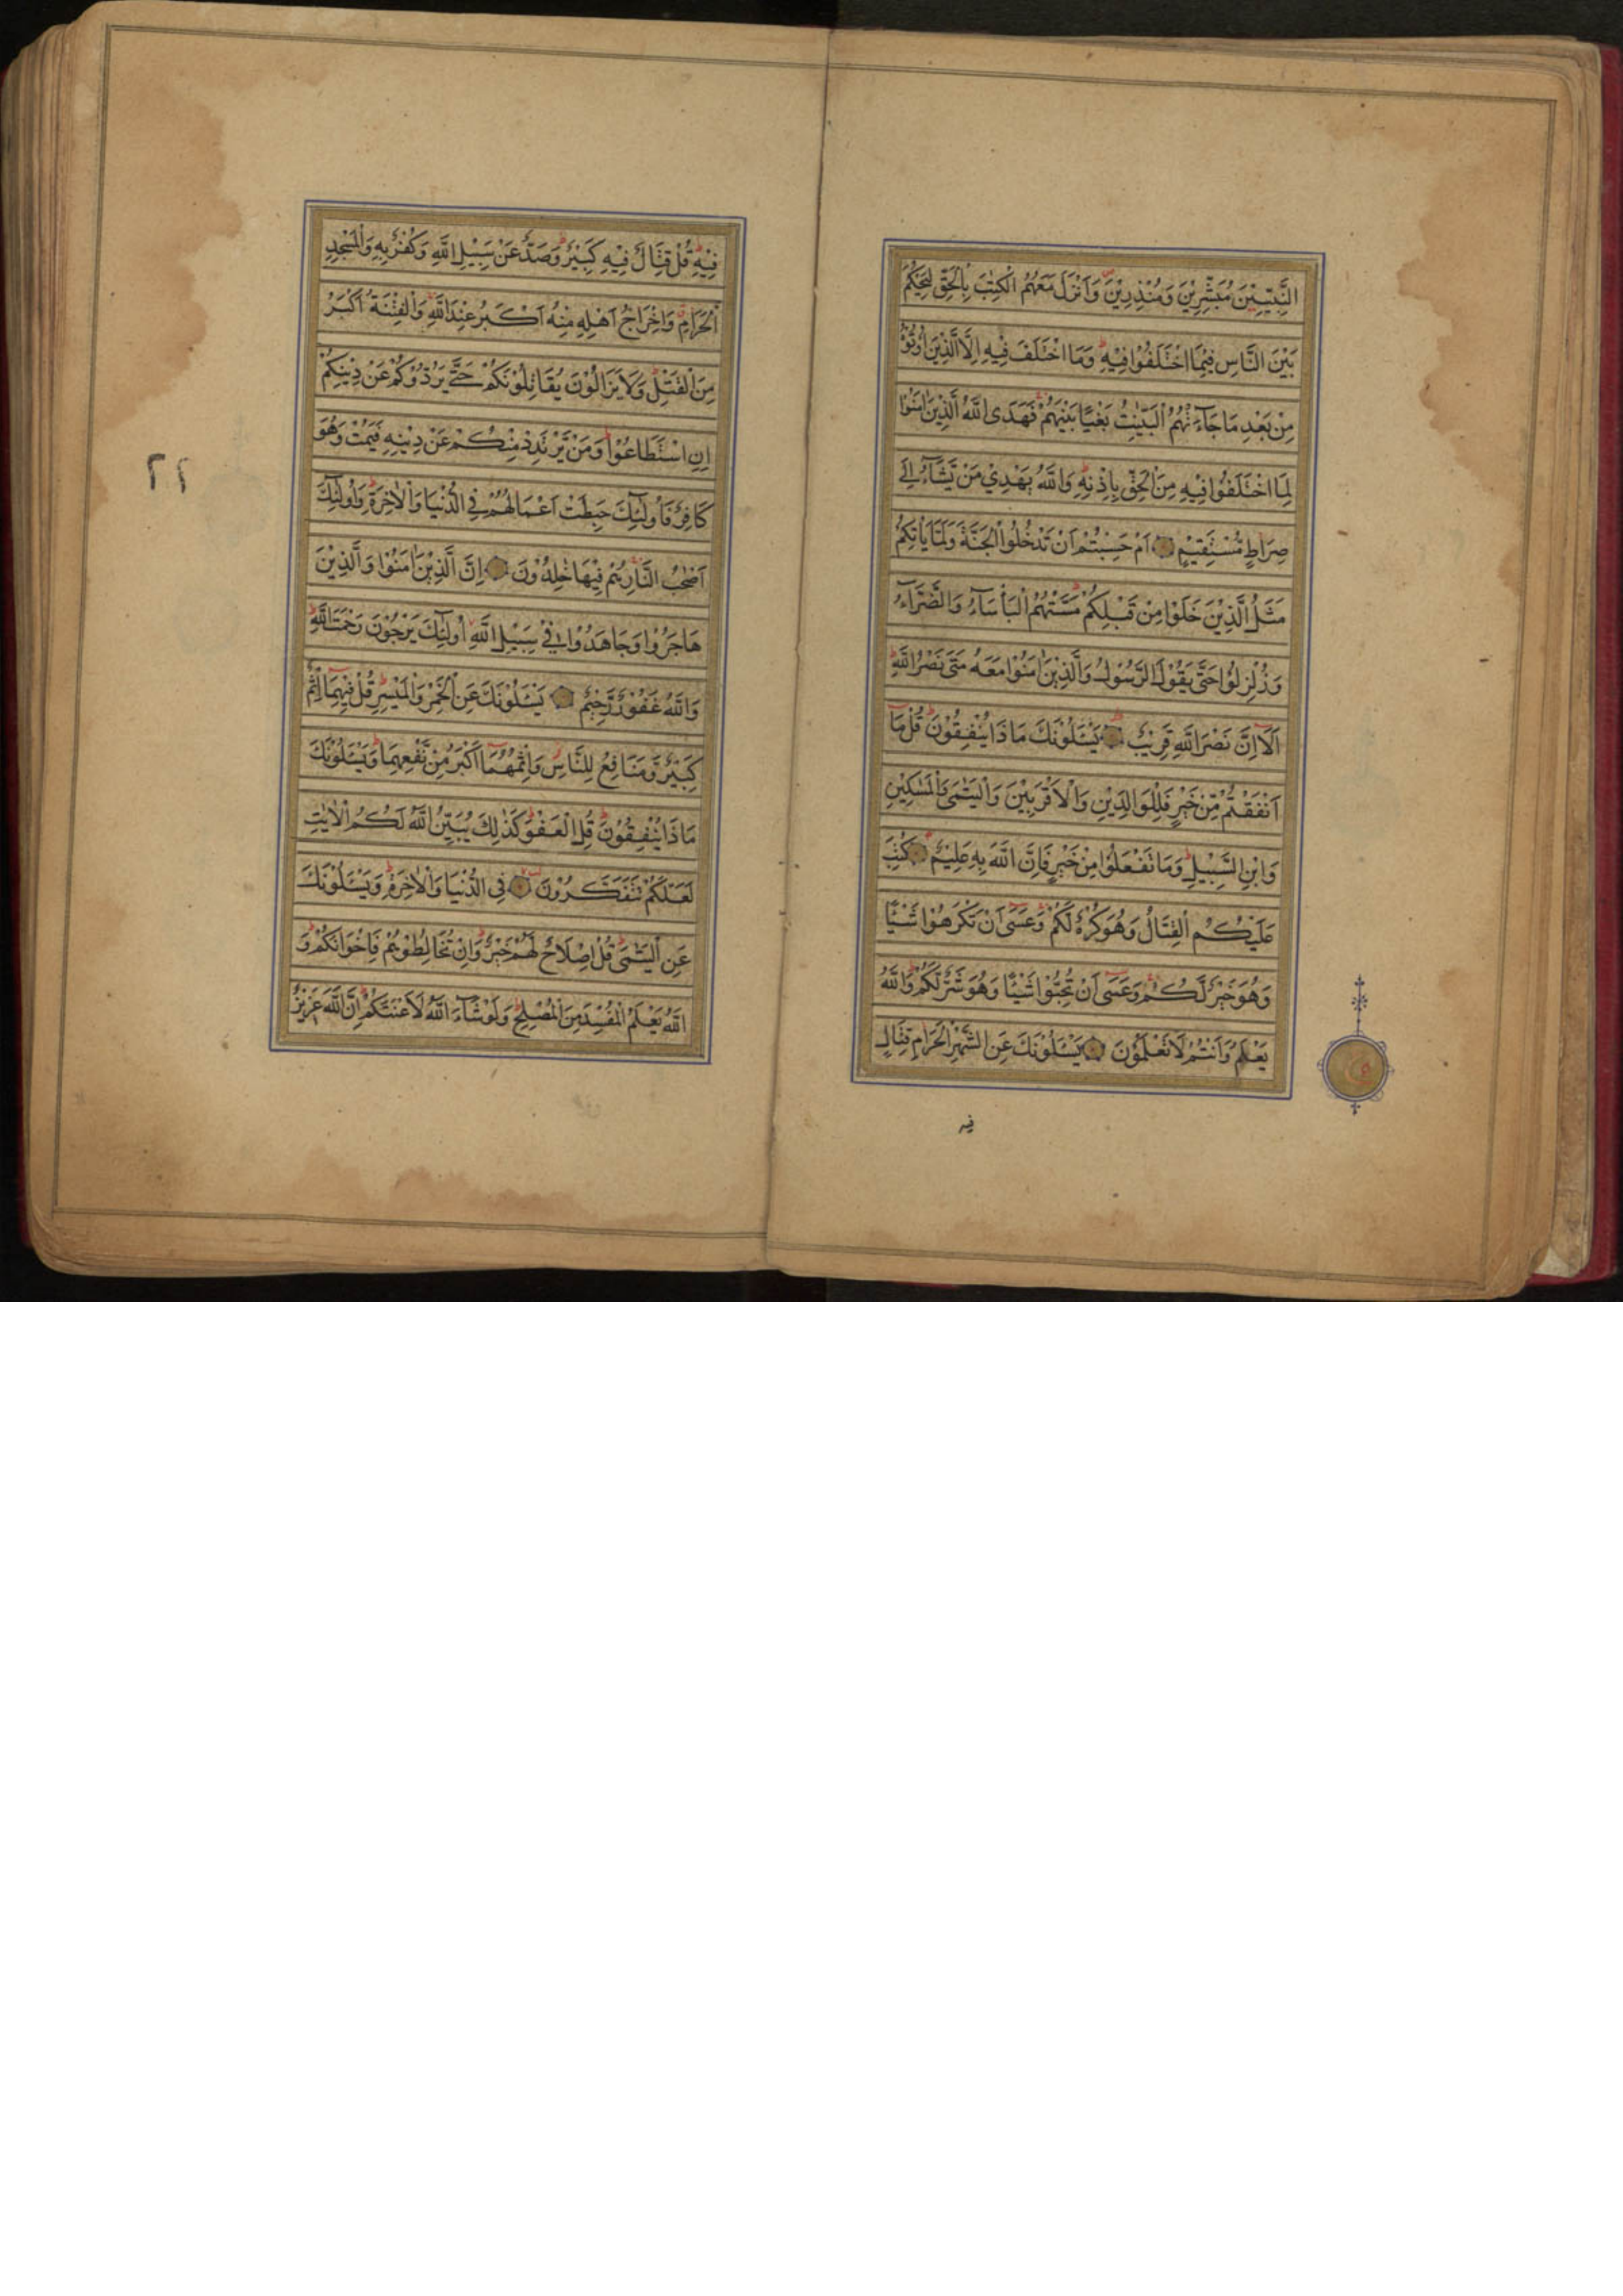 النَّبِيّٖنَ مُبَشِّرِيْنَ وَمُنْذِرِيْنَ وَاَنْزَلَ مَعَهُمُ الْكِتٰبَ بِالْحَقِّ لِيَحْكُمَ
بَيْنَ النَّاسِ فِيْمَا اخْتَلَفُوْا فِيْهِ وَمَا اخْتَلَفَ فِيْهِ اِلَّا الَّذِيْنَ اُوْتُوْهُ
مِنْ بَعْدِ مَا جَآءَتْهُمُ الْبَيِّنٰتُ بَغْيًا بَيْنَهُمْ فَهَدَى اللّٰهُ الَّذِيْنَ اٰمَنُوْا
لِمَا اخْتَلَفُوْا فِيْهِ مِنَ الْحَقِّ بِاِذْنِهٖ وَاللّٰهُ يَهْدِيْ مَنْ يَّشَآءُ اِلٰى
صِرَاطٍ مُّسْتَقِيْمٍ اَمْ حَسِبْتُمْ اَنْ تَدْخُلُوا الْجَنَّةَ وَلَمَّا يَاْتِكُمْ
مَثَلُ الَّذِيْنَ خَلَوْا مِنْ قَبْلِكُمْ مَسَّتْهُمُ الْبَاْسَآءُ وَالضَّرَّآءُ
وَزُلْزِلُوْا حَتّٰى يَقُوْلَ الرَّسُوْلُ وَالَّذِيْنَ اٰمَنُوْا مَعَهُ مَتٰى نَصْرُ اللّٰهِ
اَلَآ اِنَّ نَصْرَ اللّٰهِ قَرِيْبٌ يَسْـَٔلُوْنَكَ مَاذَا يُنْفِقُوْنَ قُلْ مَآ
اَنْفَقْتُمْ مِّنْ خَيْرٍ فَلِلْوَالِدَيْنِ وَالْاَقْرَبِيْنَ وَالْيَتٰمٰى وَالْمَسٰكِيْنِ
وَابْنِ السَّبِيْلِ وَمَا تَفْعَلُوْا مِنْ خَيْرٍ فَاِنَّ اللّٰهَ بِهٖ عَلِيْمٌ كُتِبَ
عَلَيْكُمُ الْقِتَالُ وَهُوَ كُرْهٌ لَكُمْ وَعَسٰٓى اَنْ تَكْرَهُوْا شَيْـًٔا
وَهُوَ خَيْرٌ لَّكُمْ وَعَسٰٓى اَنْ تُحِبُّوْا شَيْـًٔا وَهُوَ شَرٌّ لَّكُمْ وَاللّٰهُ
يَعْلَمُ وَاَنْتُمْ لَا تَعْلَمُوْنَ يَسْـَٔلُوْنَكَ عَنِ الشَّهْرِ الْحَرَامِ قِتَالٍ
فيه
فِيْهِ قُلْ قِتَالٌ فِيْهِ كَبِيْرٌ وَصَدٌّ عَنْ سَبِيْلِ اللّٰهِ وَكُفْرٌ بِهٖ وَالْمَسْجِدِ
الْحَرَامِ وَاِخْرَاجُ اَهْلِهٖ مِنْهُ اَكْبَرُ عِنْدَ اللّٰهِ وَالْفِتْنَةُ اَكْبَرُ
مِنَ الْقَتْلِ وَلَا يَزَالُوْنَ يُقَاتِلُوْنَكُمْ حَتّٰى يَرُدُّوْكُمْ عَنْ دِيْنِكُمْ
اِنِ اسْتَطَاعُوْا وَمَنْ يَّرْتَدِدْ مِنْكُمْ عَنْ دِيْنِهٖ فَيَمُتْ وَهُوَ
كَافِرٌ فَاُولٰٓئِكَ حَبِطَتْ اَعْمَالُهُمْ فِي الدُّنْيَا وَالْاٰخِرَةِ وَاُولٰٓئِكَ
اَصْحٰبُ النَّارِ هُمْ فِيْهَا خٰلِدُوْنَ اِنَّ الَّذِيْنَ اٰمَنُوْا وَالَّذِيْنَ
هَاجَرُوْا وَجَاهَدُوْا فِيْ سَبِيْلِ اللّٰهِ اُولٰٓئِكَ يَرْجُوْنَ رَحْمَتَ اللّٰهِ
وَاللّٰهُ غَفُوْرٌ رَّحِيْمٌ يَسْـَٔلُوْنَكَ عَنِ الْخَمْرِ وَالْمَيْسِرِ قُلْ فِيْهِمَآ اِثْمٌ
كَبِيْرٌ وَّمَنَافِعُ لِلنَّاسِ وَاِثْمُهُمَآ اَكْبَرُ مِنْ نَّفْعِهِمَا وَيَسْـَٔلُوْنَكَ
مَاذَا يُنْفِقُوْنَ قُلِ الْعَفْوَ كَذٰلِكَ يُبَيِّنُ اللّٰهُ لَكُمُ الْاٰيٰتِ
لَعَلَّكُمْ تَتَفَكَّرُوْنَ فِي الدُّنْيَا وَالْاٰخِرَةِ وَيَسْـَٔلُوْنَكَ
عَنِ الْيَتٰمٰى قُلْ اِصْلَاحٌ لَهُمْ خَيْرٌ وَاِنْ تُخَالِطُوْهُمْ فَاِخْوَانُكُمْ وَ
اللّٰهُ يَعْلَمُ الْمُفْسِدَ مِنَ الْمُصْلِحِ وَلَوْ شَآءَ اللّٰهُ لَاَعْنَتَكُمْ اِنَّ اللّٰهَ عَزِيْزٌ